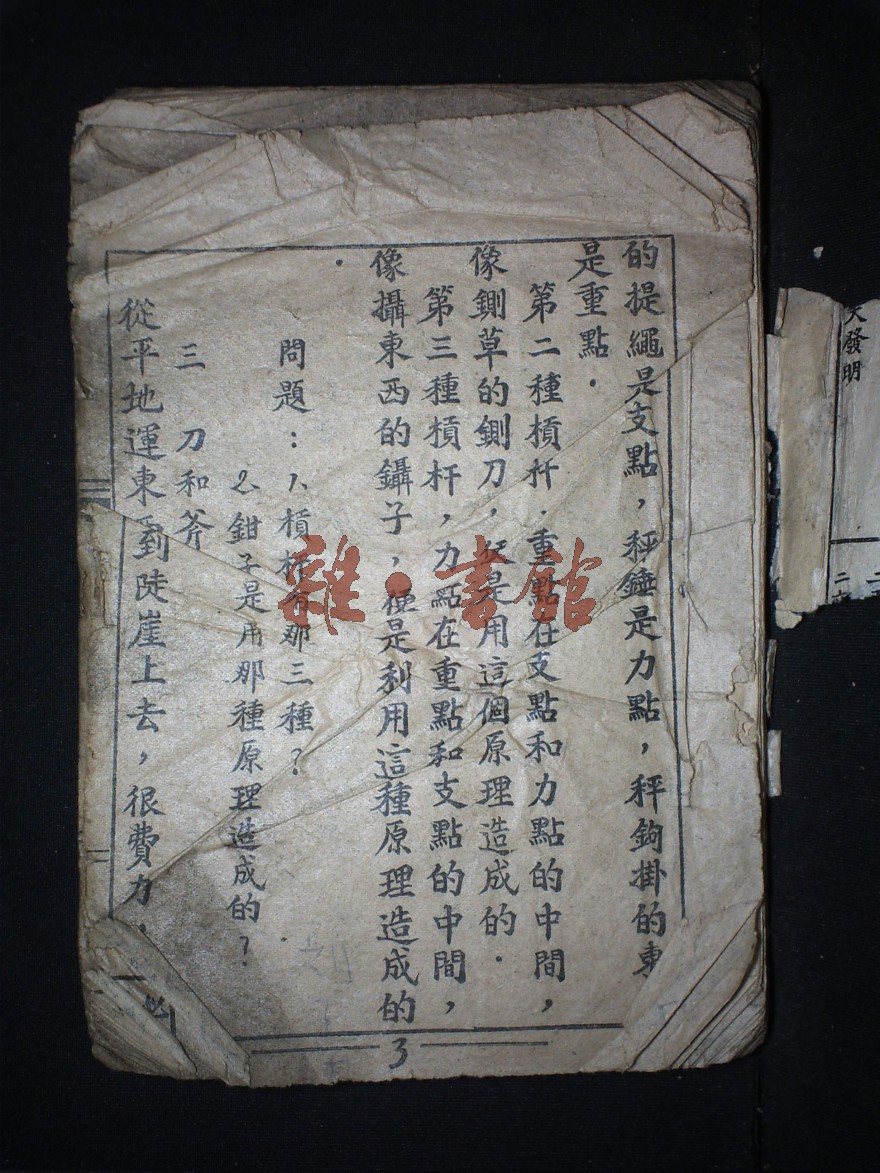 的提繩是支點，秤錘是力點，秤鉤掛的東
是重點．
第二種槓杆．重點在支點和力點的中間，
像鍘草的鍘刀，便是用這個原理造成的．
第三種槓杆，力點在重點和支點的中間，
像攝東西的鑷子，便是利用這種原理造成的
．
問題：1、槓杆有那三種？
2、鉗子是用那種原理造成的？
三 刀和斧
從平地運東到陡崖上去，很費力，
3
雜·書館
大發明